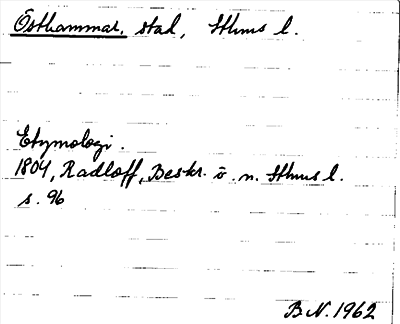 Östhammar, stad, Sthms l.
Etymologi.
1804, Radloff, Beskr. ö. n. Sthms l.
s. 96
B N. 1962